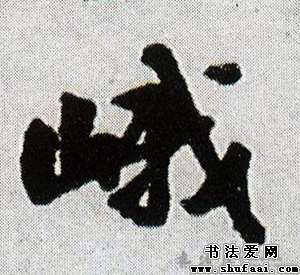 峨
书法爱网
www.shufaai.com